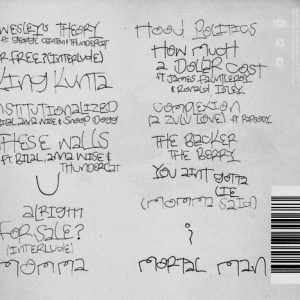 WESLEY'S THEORY
ft GEORGE CLINTON & THUNDERCAT
FOR FREE? (INTERLUDE)
KING KUNTA
INSTITUTIONALIZED
ft BILAL, ANNA WISE & SNOOP DOGG
THESE WALLS
ft BILAL, ANNA WISE &
THUNDERCAT
U
alRIGHT
FOR SALE?
(INTERLUDE)
MOMMA
HOOD POLITICS
HOW MUCH
A DOLLAR COST
ft JAMES FAUNTLEROY
& RONALD ISLEY
COMPLEXION
(A ZULU LOVE) ft RAPSODY
THE BLACKER
THE BERRY
YOU AINT GOTTA
LIE
(MOMMA SAID)
i
MORTAL MAN